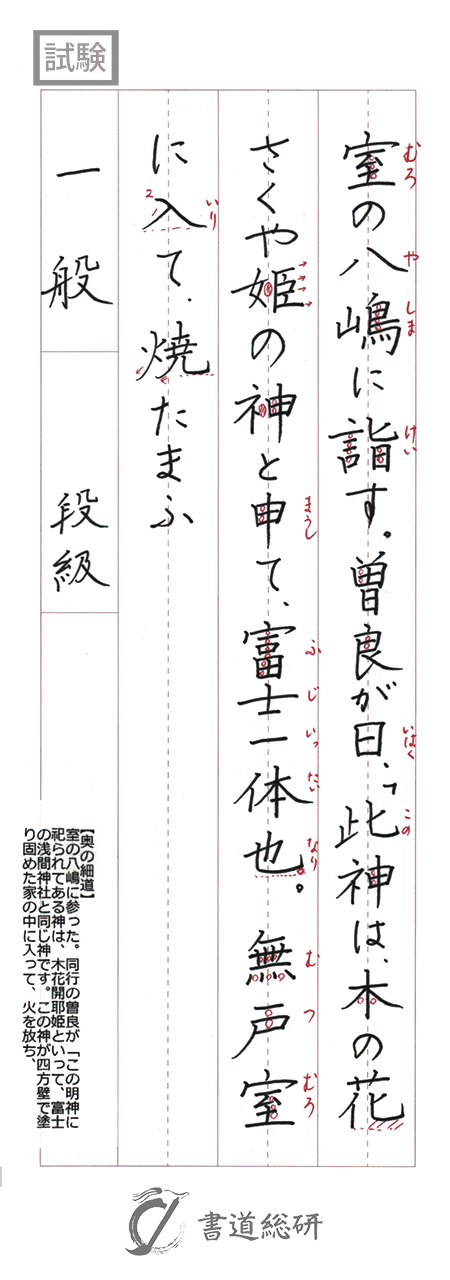 試験
室の八嶋に詣す。曽良が曰、「此神は、木の花
むろ
や
しま
けい
いはく
この
さくや姫の神と申て、富士一体也。無戸室
まうし
ふ
じ
いっ
たい
なり
む
つ
むろ
に入て、焼たまふ
いり
2
一般
段級
【奥の細道】
室の八嶋に参った。同行の曽良が、「この明神に
祀られてある神は、木花開耶姫といって、富士
の浅間神社と同じ神です。この神が四方壁で塗
り固めた家の中に入って、火を放ち、
書道総研